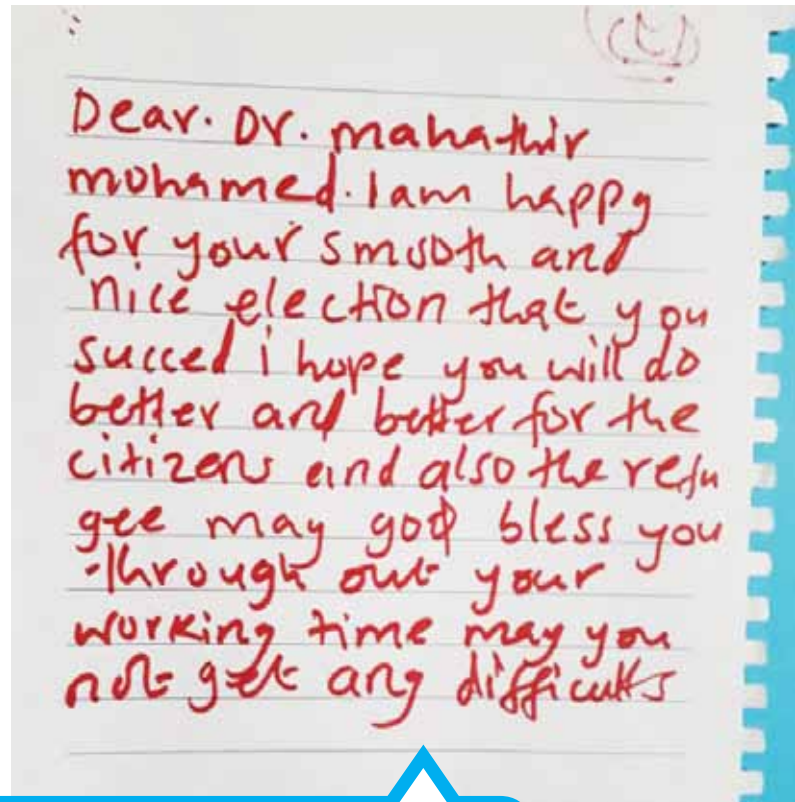 Dear. Dr. mahathir
mohamed. I am happy
for your smooth and
nice election that you
succed i hope you will do
better and better for the
citizens and also the refu
gee may god bless you
through out your
working time may you
not get any difficults